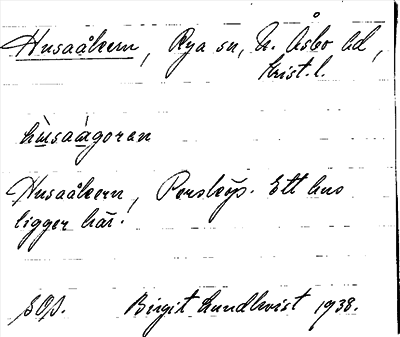 Husaåkern, Rya sn, N. Åsbo hd,
Krist. l.
hùsaágoran
Husaåkern, Perstorp. Ett hus
ligger här.
Birgit Lundkvist 1938.